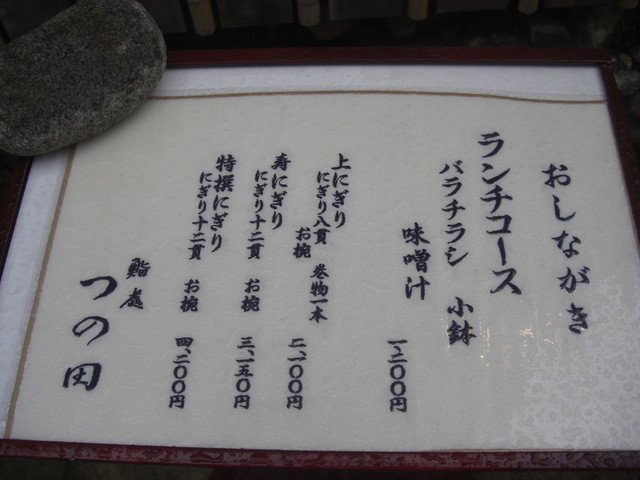 おしながき
ランチコース
バラチラシ 小鉢
味噌汁 一、二〇〇円
上にぎり
にぎり八貫 巻物一本
お椀 二、一〇〇円
寿にぎり
にぎり十二貫 お椀 三、一五〇円
特撰にぎり
にぎり十二貫 お椀 四、二〇〇円
鮨處
つの田